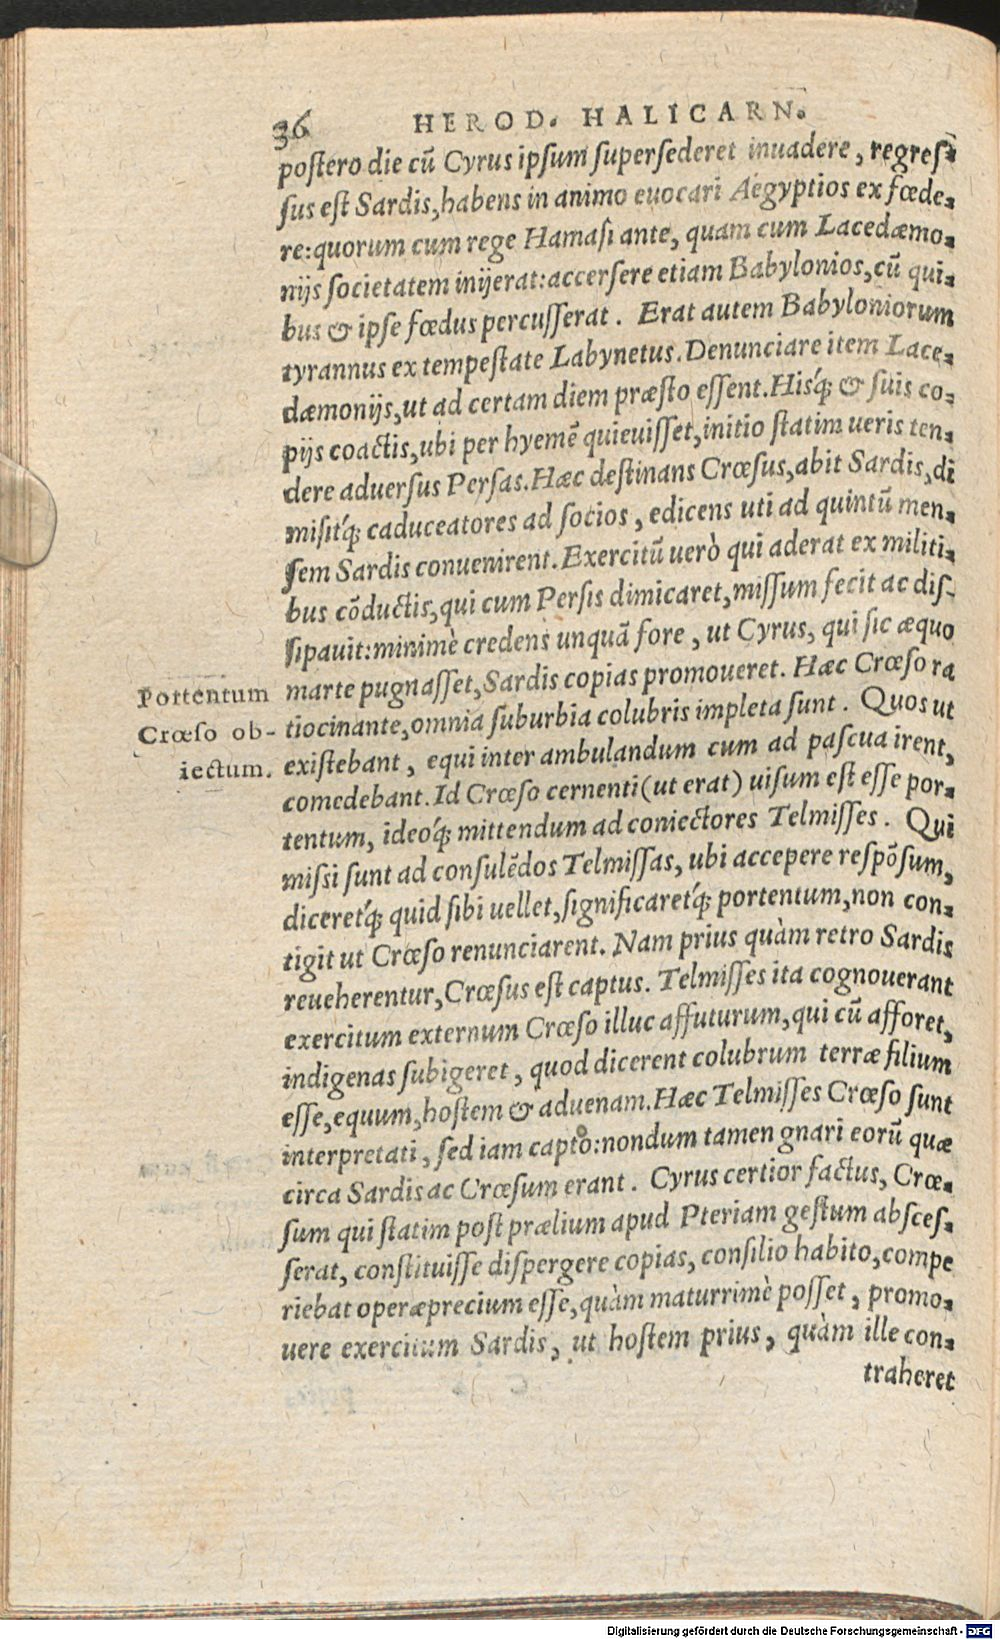 36 HEROD. HALICARN.
postero die cũ Cyrus ipsum supersederet inuadere, regres-
sus est Sardis, habens in animo euocari Aegyptios ex fœde-
re: quorum cum rege Hamasi ante, quam cum Lacedæmo-
nijs societatem inijerat: accersere etiam Babylonios, cũ qui-
bus & ipse fœdus percusserat. Erat autem Babyloniorum
tyrannus ex tempestate Labynetus. Denunciare item Lace-
dæmonijs, ut ad certam diem præsto essent. Hisq́; & suis co-
pijs coactis, ubi per hyemẽ quieuisset, initio statim ueris ten-
dere aduersus Persas. Hæc destinans Crœsus, abit Sardis, di
misitq́; caduceatores ad socios, edicens uti ad quintũ men-
sem Sardis conuenirent. Exercitũ uerò qui aderat ex militi-
bus cõductis, qui cum Persis dimicaret, missum fecit ac dis-
sipauit: minimè credens unquã fore, ut Cyrus, qui sic æquo
marte pugnasset, Sardis copias promoueret. Hæc Crœso ra
tiocinante, omnia suburbia colubris impleta sunt. Quos ut
existebant, equi inter ambulandum cum ad pascua irent,
comedebant. Id Crœso cernenti (ut erat) uisum est esse por-
tentum, ideoq́; mittendum ad coniectores Telmisses. Qui
missi sunt ad consulẽdos Telmissas, ubi accepere respõsum,
diceretq́; quid sibi uellet, significaretq́; portentum, non con-
tigit ut Crœso renunciarent. Nam prius quàm retro Sardis
reueherentur, Crœsus est captus. Telmisses ita cognouerant
exercitum externum Crœso illuc affuturum, qui cũ afforet,
indigenas subigeret, quod dicerent colubrum terræ filium
esse, equum, hostem & aduenam. Hæc Telmisses Crœso sunt
interpretati, sed iam capto: nondum tamen gnari eorũ quæ
circa Sardis ac Crœsum erant. Cyrus certior factus, Crœ-
sum qui statim post prælium apud Pteriam gestum absces-
serat, constituisse dispergere copias, consilio habito, compe
riebat operæprecium esse, quàm maturrimè posset, promo-
uere exercitum Sardis, ut hostem prius, quàm ille con-
traheret
Portentum
Crœso ob-
iectum.
Digitalisierung gefördert durch die Deutsche Forschungsgemeinschaft - DFG